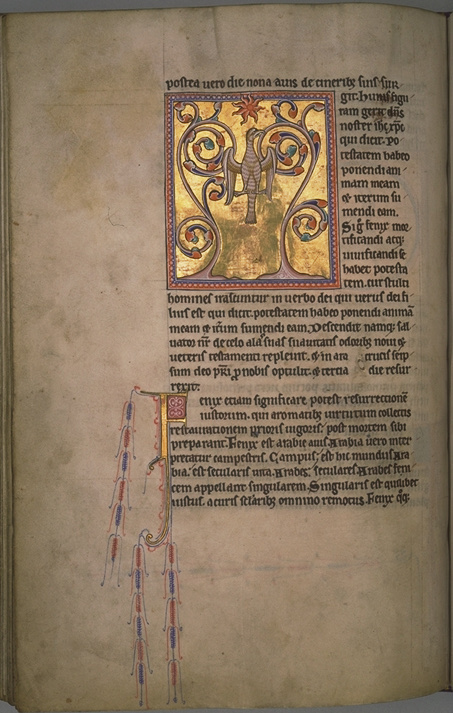 postea vero die nona avis de cineribus suis sur
git. Huius figu
ram gerit dns
noster ihc xpc
qui dicit. po
testatem habeo
ponendi ani
mam meam
et iterum su
mendi eam.
Si g fenix mor
tificandi atqз
vivificandi se
habet potesta
tem. cur stulti
homines irascuntur in verbo dei qui verus dei fi
lius est qui dicit. potestatem habeo ponendi animā
meam et itum sumendi eam. Descendit namqз sal
vator nr de celo alas suas suavitatis odoribз novi et
veteris testamenti replevit. et in ara crucis seip
sum deo patri pro nobis optulit. et tercia die resur
rexit.
Fenix etiam significare potest resurrectionē
iustorum. qui aromatibз virtutum collectis
restaurationem prioris vigoris. post mortem sibi
preparant. Fenix est arabie avis. Arabia vero inter
pretatur campestris. Campus. est hic mundus. Ara
bia. est secularis vita. Arabes. seculares. Arabes feni
cem appellant singularem. Singularis est quilibet
iustus. a curis secularibз omnino remotus. Fenix qoqз